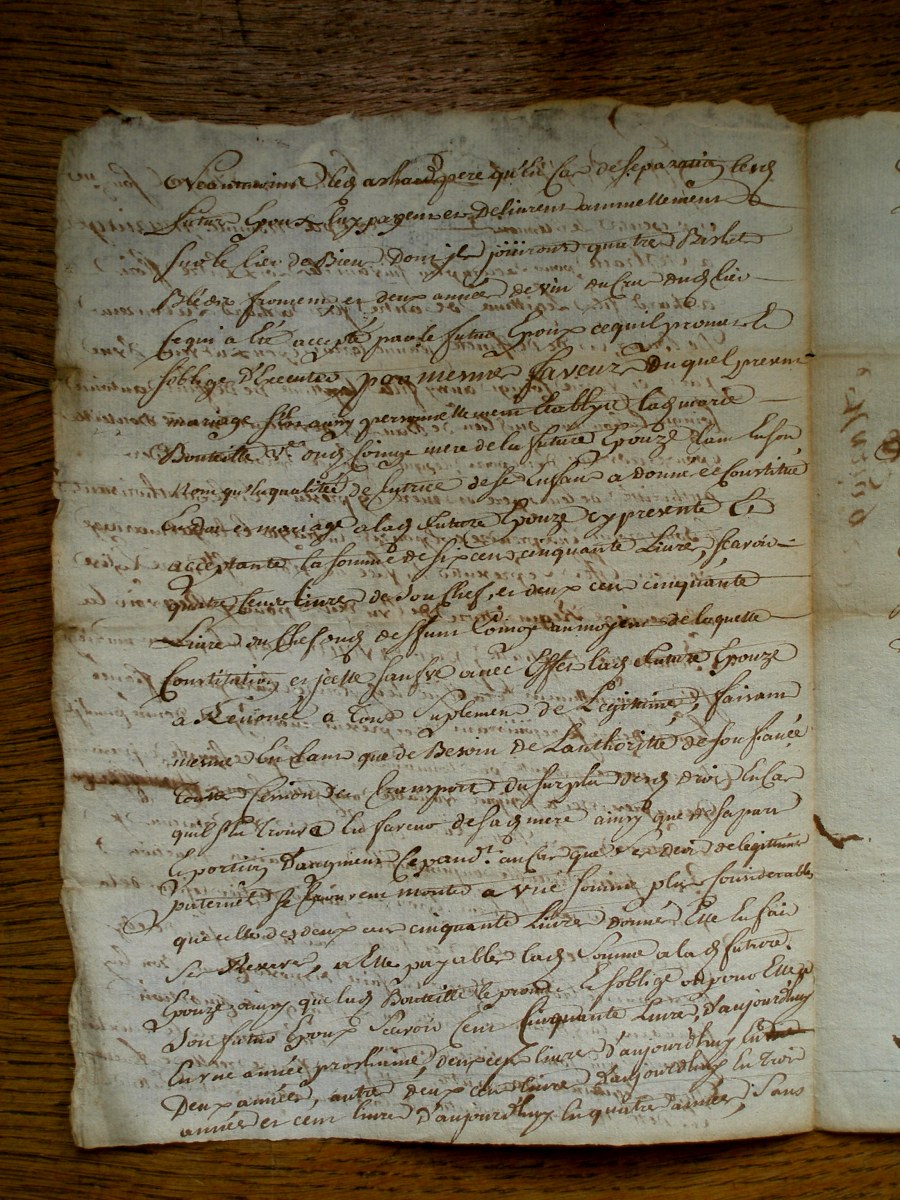 Neanmoins led achard pere qu'en cas de separation lesd
futur Epoux luy payent et Delivrent annuellement
sur le lieu de Bien Dont ils jouiront quatre
Bled froment et deux année de vin du Cru dud lieu
Ce qui a été accepté par le futur Epoux ce quil promet et
soblige D'Executer par mesme faveur Duquel present
mariage personnellement Etablye lad marie
Bouteille Ve mere de la future Epouze tant en son
Nom qu'en qualitté de tutrice de ses Enfans a donné et Constitué
En dot et mariage a lad future Epouze cy presente Et
acceptante la somme de six cens cinquante Livres, scavoir
quatre Cens livres de son Chef, et deux cens cinquante
Livres du Chef dud deffunt au moyen de laquelle
Constitution et jcelle sauf avec Effet lad future Epouze
a Renoncé a tous Suplement de Legitime, faisant
mesme En tant que de Besoin de Lauthoritté de son fiancé
toutte Cession et transport du surplus desd droits En Cas
quil sen trouve En faveur de sad mere ainsy que de sa part
et portion D'augment Cepandt au Cas que ses droits de legitime
paternel se trouvent monter a une somme plus considerable
que celle des deux cens cinquante Livres donnés Elle En fait
se Reserve, a Elle payable lad somme a lad future
Epouze ainsy que lad Bouteille le promet et soblige ou pour Elle a
son futur Epoux Scavoir Cent Cinquante Livres, d'aujourdhuy
En une année prochaine, deux cens livres d'aujourdhuy En
Deux années, autre deux cens livres d'aujourdhuy En trois
années et cent livres d'aujourdhuy En quatre années, Sans